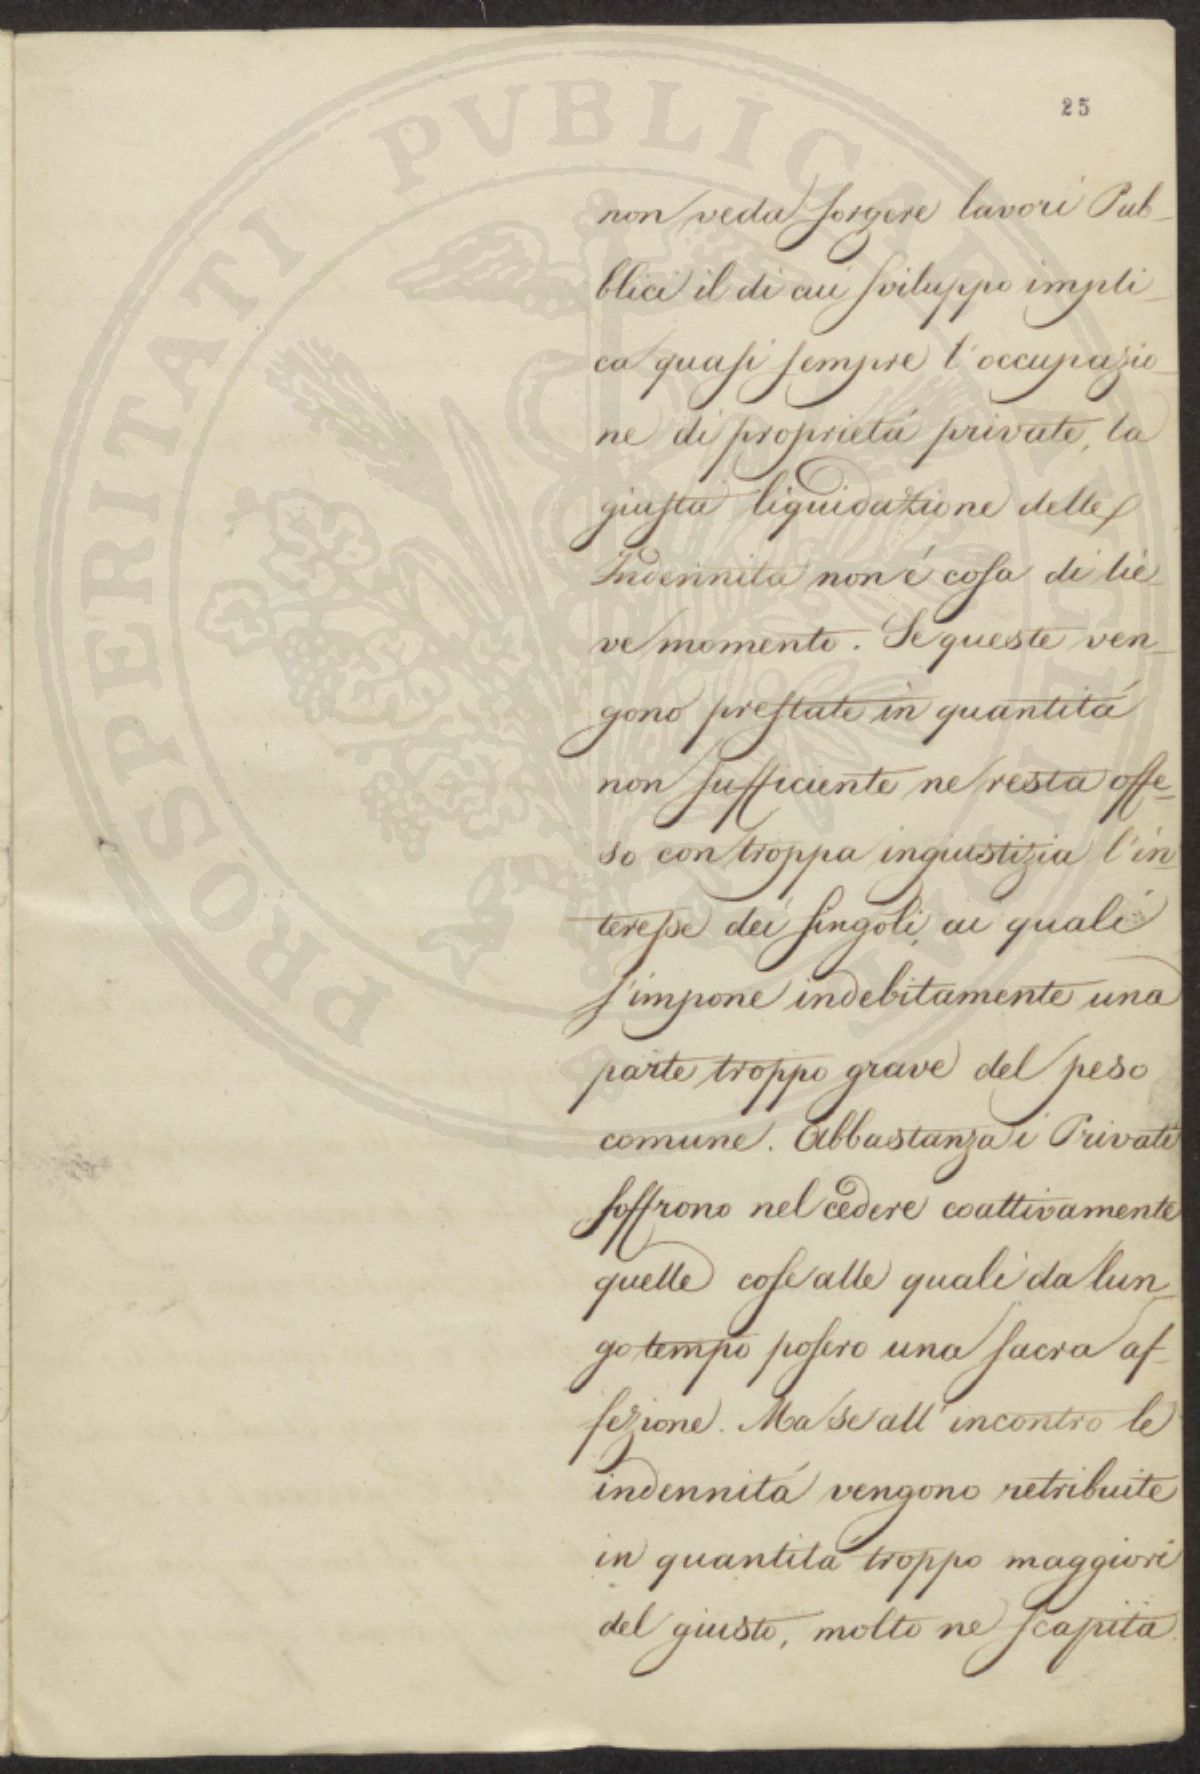 25
non veda sorgere lavori Pub-
blici il di cui sviluppo impli-
ca quasi sempre l'occupazio-
ne di proprietá private, la
giusta liquidazione delle
Indennitá non é cosa di lie-
ve momento. Se queste ven-
gono prestate in quantitá
non sufficiente ne resta offe-
so con troppa ingiustizia l'in-
teresse dei singoli, ai quali
s'impone indebitamente una
parte troppo grave del peso
comune. Abbastanza i Privati
soffrono nel cedere coattivamente
quelle cose alle quali da lun-
go tempo posero una sacra af-
fezione. Ma se all'incontro le
indennitá vengono retribuite
in quantitá troppo maggiori
del giusto, molto ne scapita
PROSPERITATI PVBLICAE